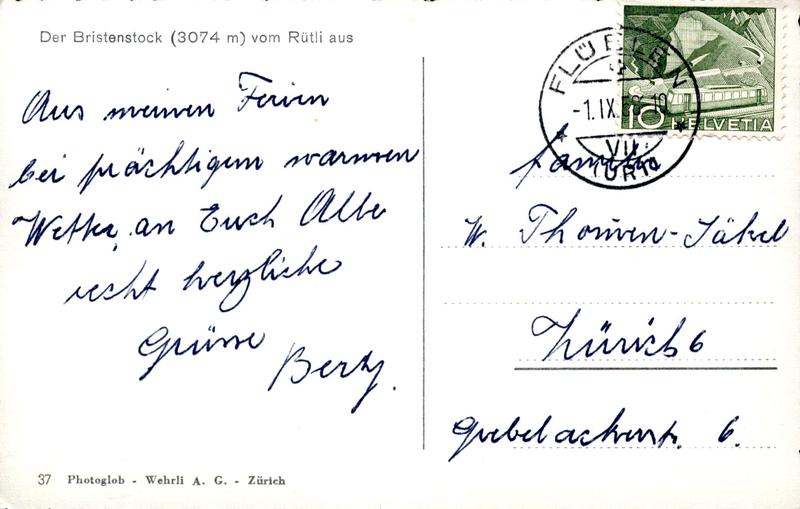 Der Bristenstock (3074 m) vom Rütli aus
Aus meinen Ferien
bei prächtigem warmen
Wetter an Euch Alle
recht herzliche
Grüsse
Berty.
37 Photoglob - Wehrli A. G. - Zürich
FLÜELEN
-1.IX.
10
HELVETIA
(URI)
Familie
W. Thommen-Jäkel
Zürich 6
Grebelackerstr. 6.